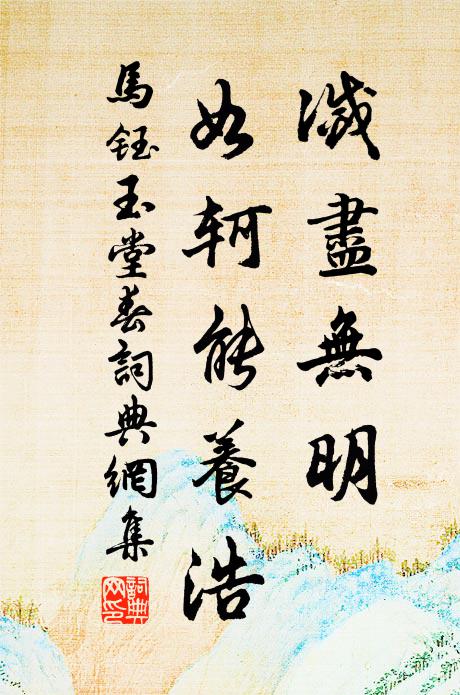 滅盡無明
如軻能養浩
馬鈺玉堂春詞典網集
詞典网印